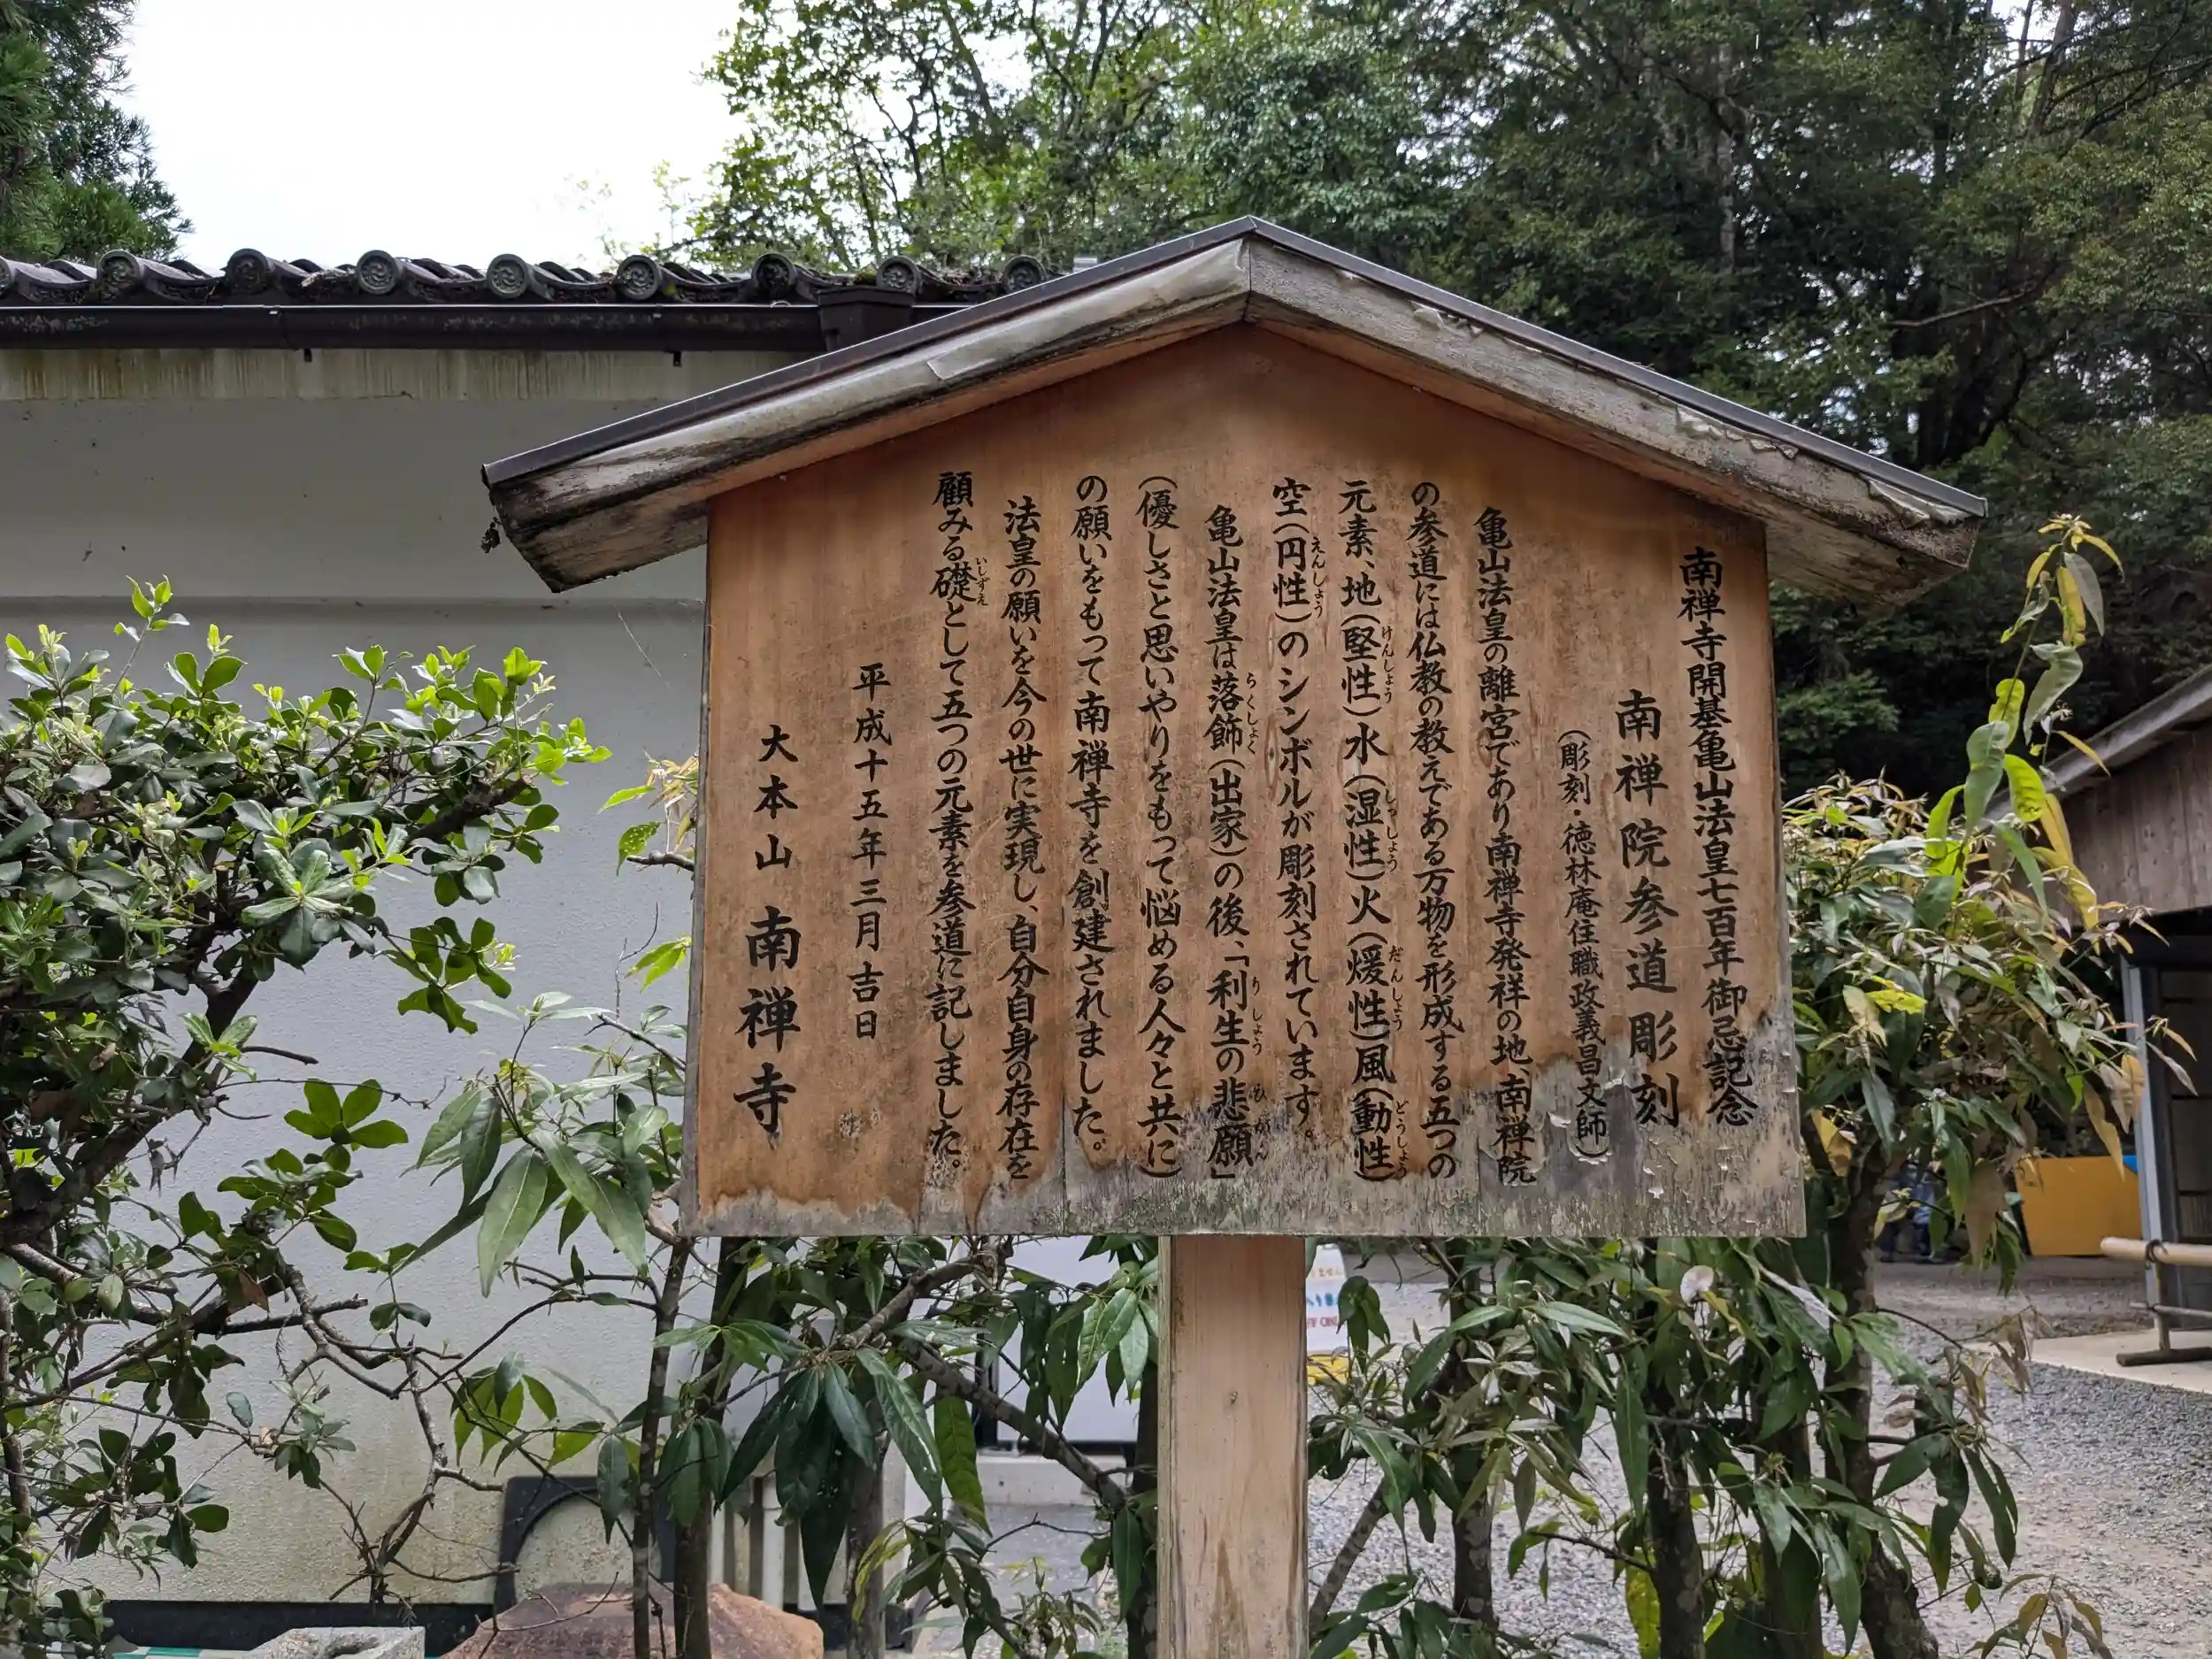 南禅寺開基亀山法皇七百年御忌記念
南禅院参道彫刻
(彫刻・徳林庵住職政義昌文師)
亀山法皇の離宮であり南禅寺発祥の地、南禅院
の参道には仏教の教えである万物を形成する五つの
元素、地(堅性)水(湿性)火(煖性)風(動性)
けんしょう しっしょう だんしょう どうしょう
空(円性)のシンボルが彫刻されています。
えんしょう
亀山法皇は落飾(出家)の後、「利生の悲願」
らくしょく りしょう ひがん
(優しさと思いやりをもって悩める人々と共に)
の願いをもって南禅寺を創建されました。
法皇の願いを今の世に実現し、自分自身の存在を
顧みる礎として五つの元素を参道に記しました。
いしずえ
平成十五年三月吉日
大本山 南禅寺